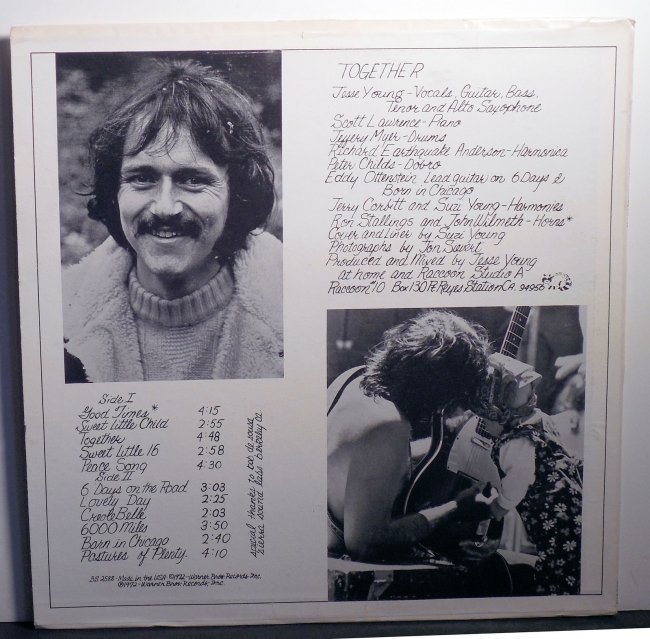 TOGETHER
Jesse Young - Vocals, Guitar, Bass,
Tenor and Alto Saxophone
Scott Lawrence - Piano
Jeffery Myer - Drums
Richard Earthquake Anderson - Harmonica
Peter Childs - Dobro
Eddy Ottenstein Lead guitar on 6 Days &
Born in Chicago
Jerry Corbitt and Suzi Young - Harmonies
Ron Stallings and John Wilmeth - Horns*
Cover and Liner by Suzi Young
Photographs by Jon Sievert
Produced and Mixed by Jesse Young
at home and Raccoon Studio A
Raccoon #10 Box 130 Pt. Reyes Station CA. 94956
Side I
Good Times* 4:15
Sweet Little Child 2:55
Together 4:48
Sweet Little 16 2:58
Peace Song 4:30
Side II
6 Days on the Road 3:03
Lovely Day 2:25
Creole Belle 2:03
6000 Miles 3:50
Born in Chicago 2:40
Pastures of Plenty 4:10
special thanks to bob de sousa
sierra sound labs berkeley ca
BS 2588 - Made in the USA ©1972 - Warner Bros. Records, Inc.
℗1972 - Warner Bros. Records, Inc.